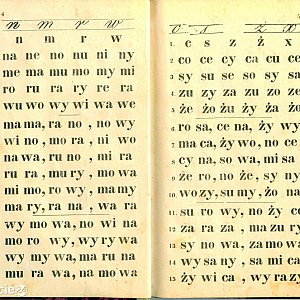 4
n m r w
n m r w
na ne no nu ni ny
me ma mu mo my mi
ro ru ra ry re ra
wu wo wy wi wa we
ma ma, ra no, no wy
wi no, mo ra, wi no
na wa, ru no, mi ra
ru ra, mu ry, mo wa
mi mo, ro wy, ma my
ma ry, ra na, wa ra
wy mo wa, no wi na
mo ro wy, wy ry wa
wy my wa, ma ru na
mu ra wa, na mo wa
c s z x
1. c s z ż x
2. co ce cy ca cu ce
3. sy su se so sy sa
4. zu zy za zu zo ze
5. że żo żu ży ża żo
6. ro sa, ce na, ży wy
7. ma ca, ży wo, no we
8. cy na, so wa, mi sa
9. że ro, no że, sy ny
10. wo zy, su my, żo na
11. su ro wy, no ży co
12. za ra za, ma zu ry
13. sy no wa, za mo wa
14. wy sa ny, sa mi ca
15. ży wi ca, wy ra zy